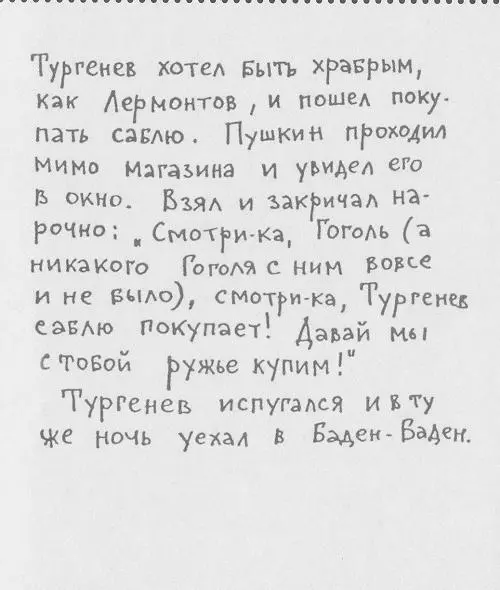 Тургенев хотел быть храбрым,
как Лермонтов, и пошел поку-
пать саблю. Пушкин проходил
мимо магазина и увидел его
в окно. Взял и закричал на-
рочно: „Смотри-ка, Гоголь (а
никакого Гоголя с ним вовсе
и не было), смотри-ка, Тургенев
саблю покупает! Давай мы
с тобой ружье купим!"
Тургенев испугался и в ту
же ночь уехал в Баден-Баден.